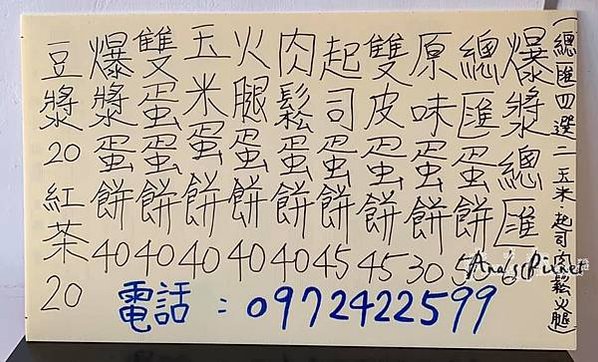 (總匯四選二玉米.起司.肉鬆.火腿)
爆漿總匯
總匯蛋餅
原味蛋餅30
雙皮蛋餅45
起司蛋餅45
肉鬆蛋餅40
火腿蛋餅40
玉米蛋餅40
雙蛋蛋餅40
爆漿蛋餅40
豆漿20紅茶20
電話：0972422599
Ana's Pixnet